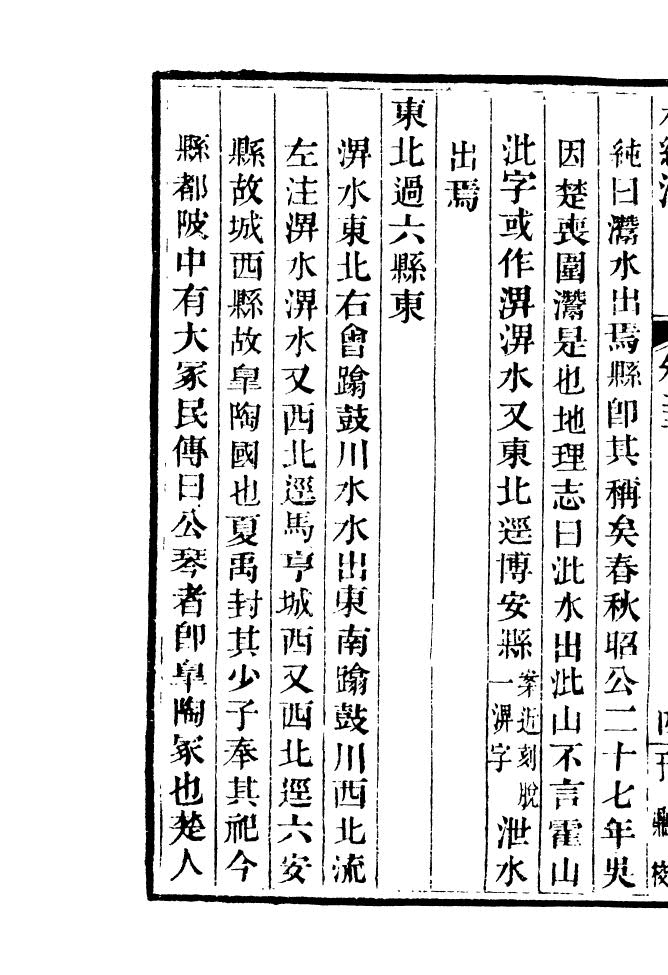 純曰灊水出焉縣即其稱矣春秋昭公二十七年吳
因楚喪圍灊是也地理志曰沘水出沘山不言霍山
沘字或作淠淠水又東北逕博安縣案近刻脫一淠字泄水
出焉
東北過六縣東
淠水東北右會蹹鼓川水水出東南蹹鼓川西北流
左注淠水淠水又西北逕馬亨城西又西北逕六安
縣故城西縣故皐陶國也夏禹封其少子奉其祀今
縣都陂中有大冢民傳曰公琴者即皐陶冢也楚人